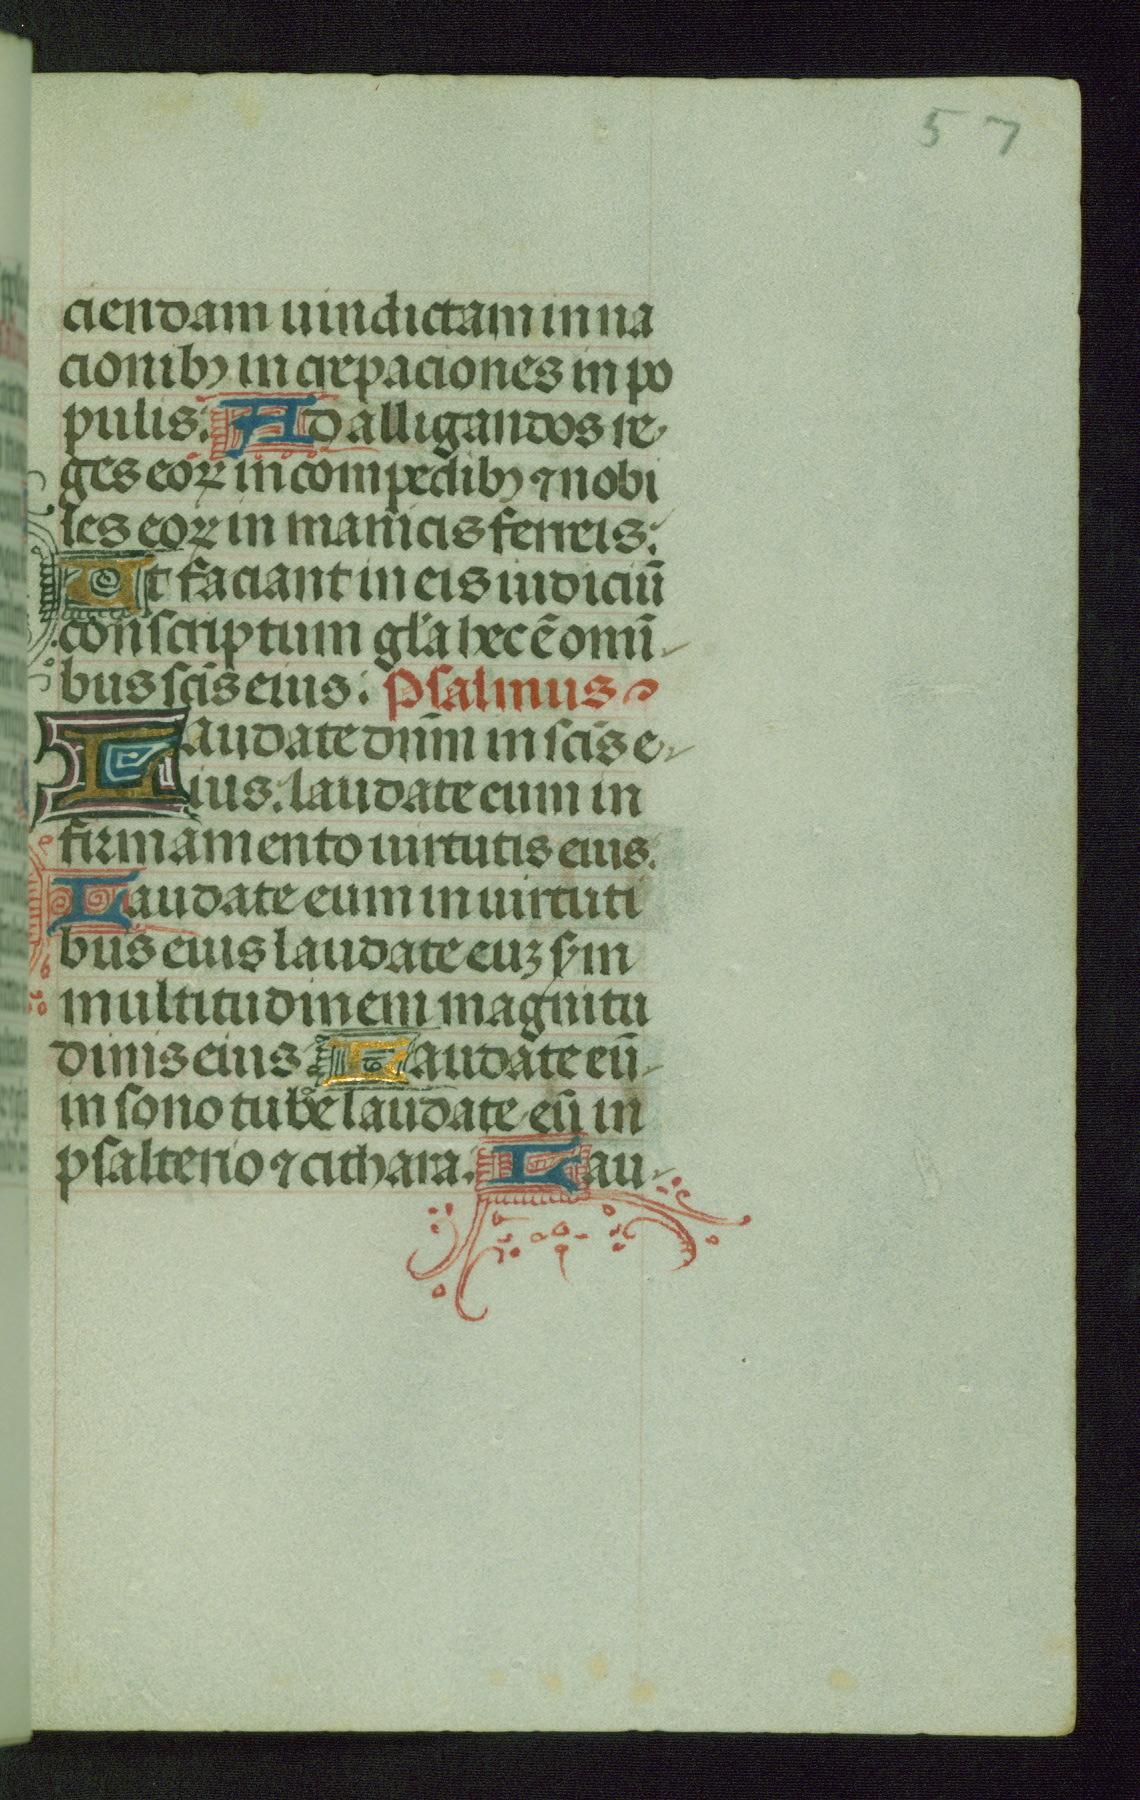 57
ciendam uindictam in na
cionibꝫ increpaciones in po
pulis. Ad alligandos re
ges eoꝝ in compedibꝫ ⁊ nobi
les eoꝝ in manicis ferreis.
Ut faciant in eis iudiciū
conscriptum gl'a hec ē omī
bus sc̄is eius. Psalmus
Laudate dn̄m in sc̄is e
ius. laudate eum in
firmamento uirtutis eius.
Laudate eum in uirtuti
bus eius laudate euꝫ sym
multitudinem magnitu
dinis eius. Laudate eū
in sono tube laudate eū in
psalterio ⁊ cithara. Lau